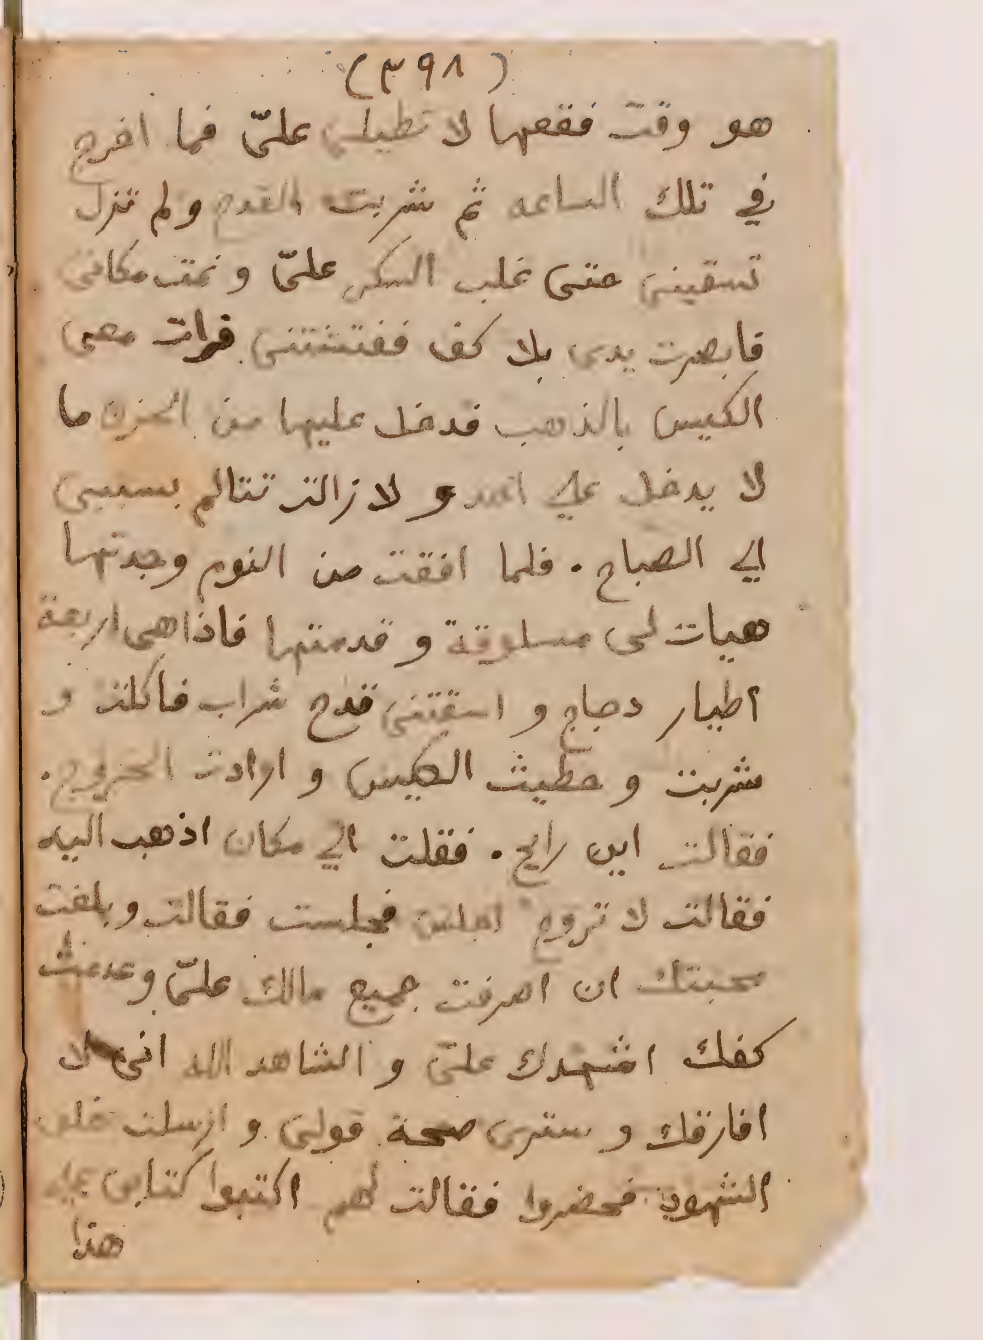 (٣٩٨)
هو وقت فقعها لا تطيلي عليّ فما اخرج
في تلك الساعه ثم شربت القدح ولم تزل
تسقيني حتى غلب السكر عليّ و نمت مكاني
فابصرت يدى بلا كف ففتشتني فرات معى
الكيس بالذهب فدخل عليها من الحزن ما
لا يدخل على احد و لا زالت تتالم بسببى
الي الصباح . فلما افقت من النوم وجدتها
هيات لى مسلوقة و قدمتها فاذا هى اربعة
اطيار دجاج و اسقتني قدح شراب فاكلت و
شربت و حطيت الكيس و اردت الخروج .
فقالت اين رايح . فقلت الي مكان اذهب اليه
فقالت لا تروح اجلس فجلست فقالت وبلغت
محبتك ان اصرفت جميع مالك عليّ وعدمت
كفك اشهدك عليّ و الشاهد الله اني لا
افارقك و سترى صحة قولي و ارسلت خلف
الشهود فحضروا فقالت لهم اكتبوا كتابى على
هذا